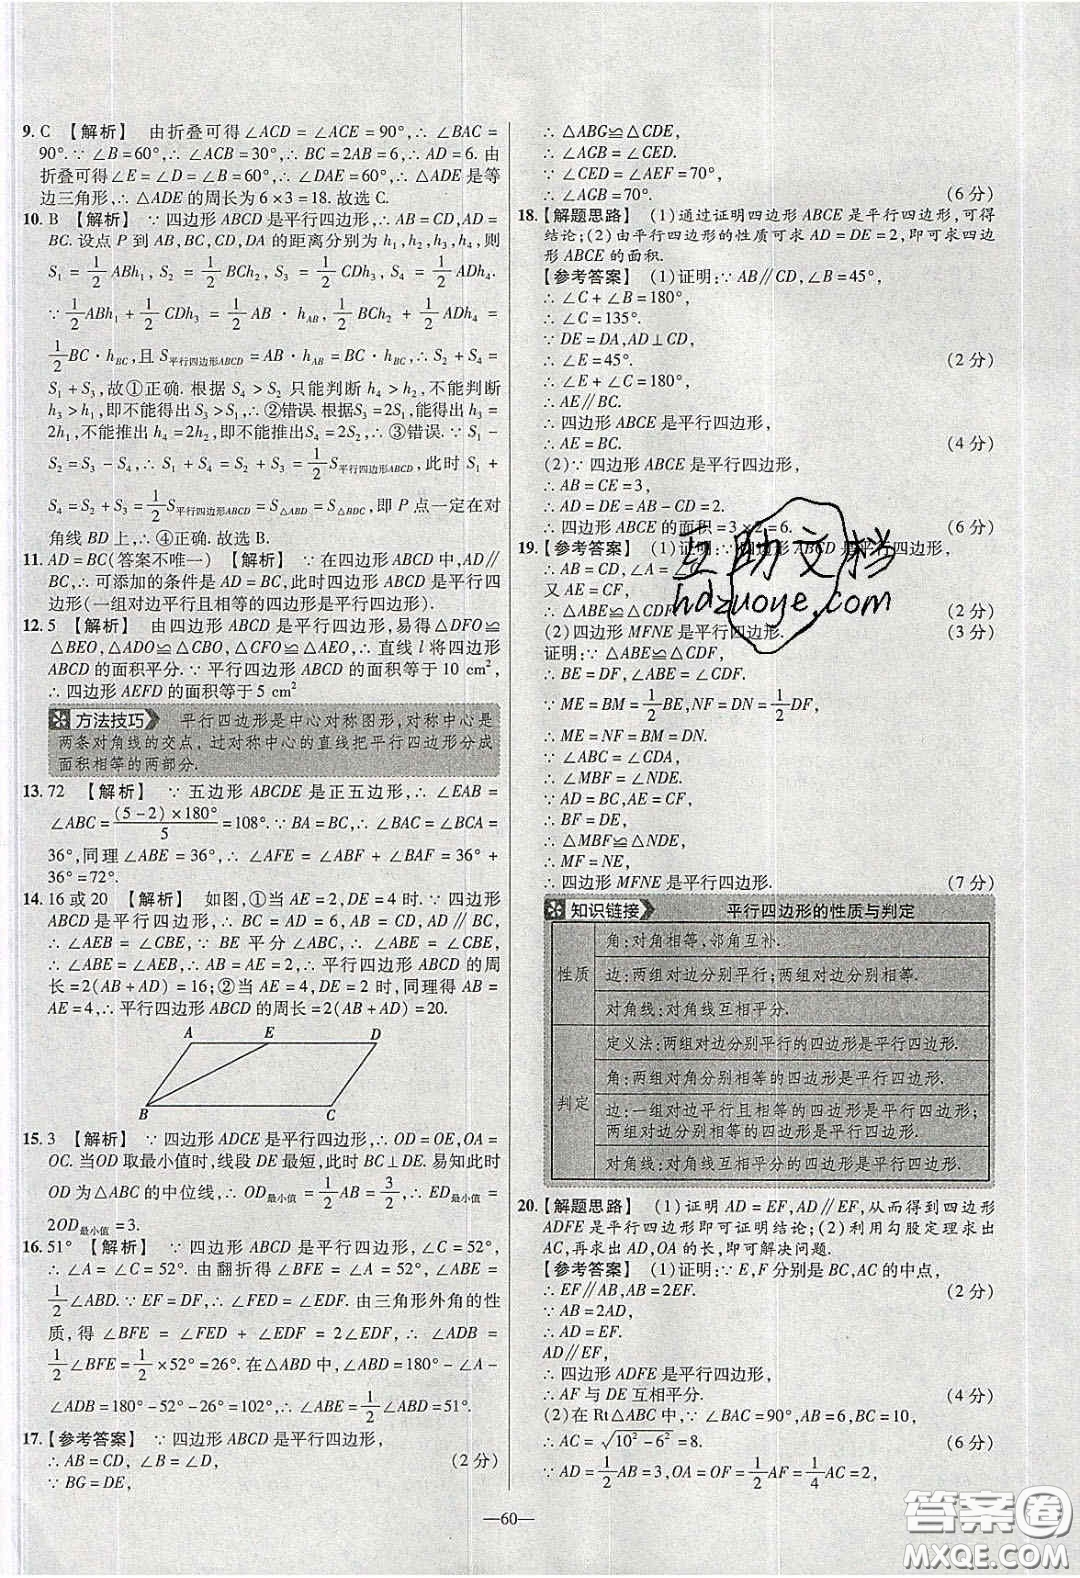 9. C 【解析】 由折叠可得∠ACD=∠ACE=90°,∴∠BAC=
90°.∵∠B=60°,∴∠ACB=30°,∴BC=2AB=6,∴AD=6.由
折叠可得∠E=∠D=∠B=60°,∴∠DAE=60°,∴△ADE是等
边三角形,∴△ADE的周长为6×3=18.故选C.
10. B 【解析】 ∵四边形ABCD是平行四边形,∴AB=CD,AD=
BC.设点P到AB,BC,CD,DA的距离分别为h₁,h₂,h₃,h₄,则
S₁=1/2ABh₁,S₂=1/2BCh₂,S₃=1/2CDh₃,S₄=1/2ADh₄.
∵1/2ABh₁+1/2CDh₃=1/2AB·h_AB,1/2BCh₂+1/2ADh₄=
1/2BC·h_BC,且S平行四边形ABCD=AB·h_AB=BC·h_BC,∴S₂+S₄=
S₁+S₃,故①正确.根据S₄>S₂只能判断h₄>h₂,不能判断
h₃>h₁,即不能得出S₃>S₁,∴②错误.根据S₃=2S₁,能得出h₃=
2h₁,不能推出h₄=2h₂,即不能推出S₄=2S₂,∴③错误.∵S₁-
S₂=S₃-S₄,∴S₁+S₄=S₂+S₃=1/2S平行四边形ABCD,此时S₁+
S₄=S₂+S₃=1/2S平行四边形ABCD=S△ABD=S△BDC,即P点一定在对
角线BD上,∴④正确.故选B.
11. AD=BC(答案不唯一) 【解析】 ∵在四边形ABCD中,AD∥
BC,∴可添加的条件是AD=BC,此时四边形ABCD是平行四
边形(一组对边平行且相等的四边形是平行四边形).
12. 5 【解析】 由四边形ABCD是平行四边形,易得△DFO≌
△BEO,△ADO≌△CBO,△CFO≌△AEO,∴直线l将四边形
ABCD的面积平分.∵平行四边形ABCD的面积等于10 cm²,
∴四边形AEFD的面积等于5 cm²
方法技巧 平行四边形是中心对称图形,对称中心是
两条对角线的交点,过对称中心的直线把平行四边形分成
面积相等的两部分.
13. 72 【解析】 ∵五边形ABCDE是正五边形,∴∠EAB=
∠ABC=(5-2)×180°/5=108°.∵BA=BC,∴∠BAC=∠BCA=
36°,同理∠ABE=36°,∴∠AFE=∠ABF+∠BAF=36°+
36°=72°.
14. 16或20 【解析】 如图,①当AE=2,DE=4时.∵四边形
ABCD是平行四边形,∴BC=AD=6,AB=CD,AD∥BC,
∴∠AEB=∠CBE,∵BE平分∠ABC,∴∠ABE=∠CBE,
∴∠ABE=∠AEB,∴AB=AE=2,∴平行四边形ABCD的周
长=2(AB+AD)=16;②当AE=4,DE=2时,同理得AB=
AE=4,∴平行四边形ABCD的周长=2(AB+AD)=20.
A E D
B C
15. 3 【解析】 ∵四边形ADCE是平行四边形,∴OD=OE,OA=
OC.当OD取最小值时,线段DE最短,此时BC⊥DE.易知此时
OD为△ABC的中位线,∴OD最小值=1/2AB=3/2,∴ED最小值=
2OD最小值=3.
16. 51° 【解析】 ∵四边形ABCD是平行四边形,∠C=52°,
∴∠A=∠C=52°.由翻折得∠BFE=∠A=52°,∠FBE=
1/2∠ABD.∵EF=DF,∴∠FED=∠EDF.由三角形外角的性
质,得∠BFE=∠FED+∠EDF=2∠EDF=52°,∴∠ADB=
1/2∠BFE=1/2×52°=26°.在△ABD中,∠ABD=180°-∠A-
∠ADB=180°-52°-26°=102°,∴∠ABE=1/2∠ABD=51°.
17. 【参考答案】 ∵四边形ABCD是平行四边形,
∴AB=CD,∠B=∠D, (2分)
∵BG=DE,
∴△ABG≌△CDE,
∴∠AGB=∠CED.
∵∠CED=∠AEF=70°,
∴∠AGB=70°. (6分)
18. 【解题思路】 (1)通过证明四边形ABCE是平行四边形,可得
结论;(2)由平行四边形的性质可求AD=DE=2,即可求四边
形ABCE的面积.
【参考答案】 (1)证明:∵AB∥CD,∠B=45°,
∴∠C+∠B=180°,
∴∠C=135°.
∵DE=DA,AD⊥CD,
∴∠E=45°. (2分)
∴∠E+∠C=180°,
∴AE∥BC.
∴四边形ABCE是平行四边形,
∴AE=BC. (4分)
(2)∵四边形ABCE是平行四边形,
∴AB=CE=3,
∴AD=DE=AB-CD=2.
∴四边形ABCE的面积=3×2=6. (6分)
19. 【参考答案】 (1)证明:∵四边形ABCD是平行四边形,
∴AB=CD,∠A=∠C
又AE=CF,
∴△ABE≌△CDF (2分)
(2)四边形MFNE是平行四边形. (3分)
证明:∵△ABE≌△CDF,
∴BE=DF,∠ABE=∠CDF.
∵ME=BM=1/2BE,NF=DN=1/2DF,
∴ME=NF=BM=DN.
∵∠ABC=∠CDA,
∴∠MBF=∠NDE.
∵AD=BC,AE=CF,
∴BF=DE,
∴△MBF≌△NDE,
∴MF=NE,
∴四边形MFNE是平行四边形. (7分)
知识链接 平行四边形的性质与判定
性质
角:对角相等,邻角互补.
边:两组对边分别平行;两组对边分别相等.
对角线:对角线互相平分.
判定
定义法:两组对边分别平行的四边形是平行四边形.
角:两组对角分别相等的四边形是平行四边形.
边:一组对边平行且相等的四边形是平行四边形;
两组对边分别相等的四边形是平行四边形.
对角线:对角线互相平分的四边形是平行四边形.
20. 【解题思路】 (1)证明AD=EF,AD∥EF,从而得到四边形
ADFE是平行四边形即可证明结论;(2)利用勾股定理求出
AC,从而求出AD,OA的长,即可解决问题.
【参考答案】 (1)证明:∵E,F分别是BC,AC的中点,
∴EF∥AB,AB=2EF. (2分)
∵AB=2AD,
∴AD=EF.
AD∥EF,
∴四边形ADFE是平行四边形,
∴AF与DE互相平分. (4分)
(2)在Rt△ABC中,∵∠BAC=90°,AB=6,BC=10,
∴AC=√(10²-6²)=8. (6分)
∵AD=1/2AB=3,OA=OF=1/2AF=1/4AC=2,
—60—
互助文档
hdzuoye.com
答案圈
MXQE.COM